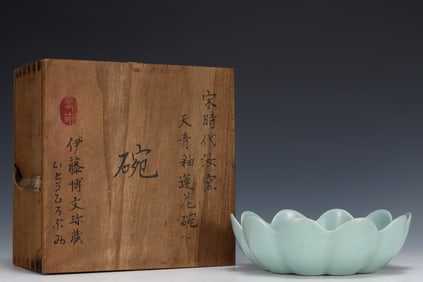 宋時代汝窯
天青釉蓮花碗
碗
伊藤博文珍蔵
いとうひろぶみ